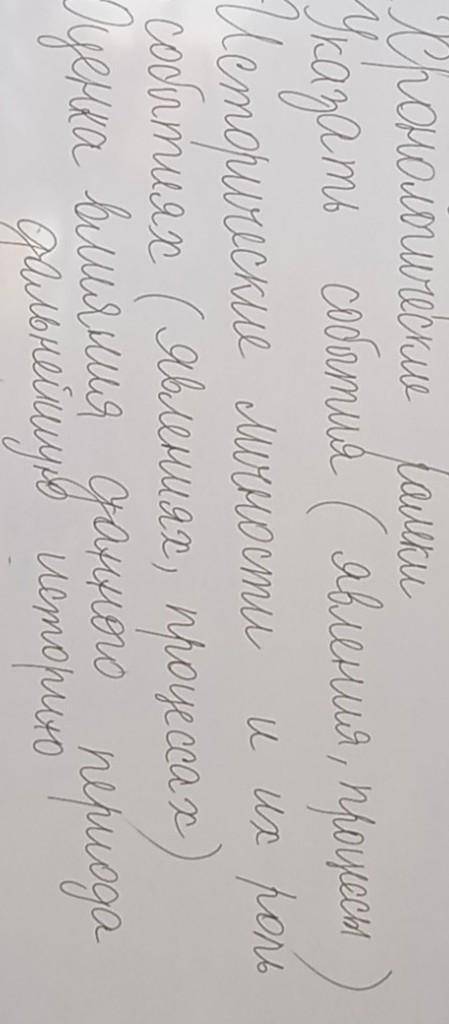 Хронологические рамки
Указать события (явления, процессы)
Исторические личности и их роль
событиях (явлениях, процессах)
Оценка влияния данного периода
дальнейшую историю